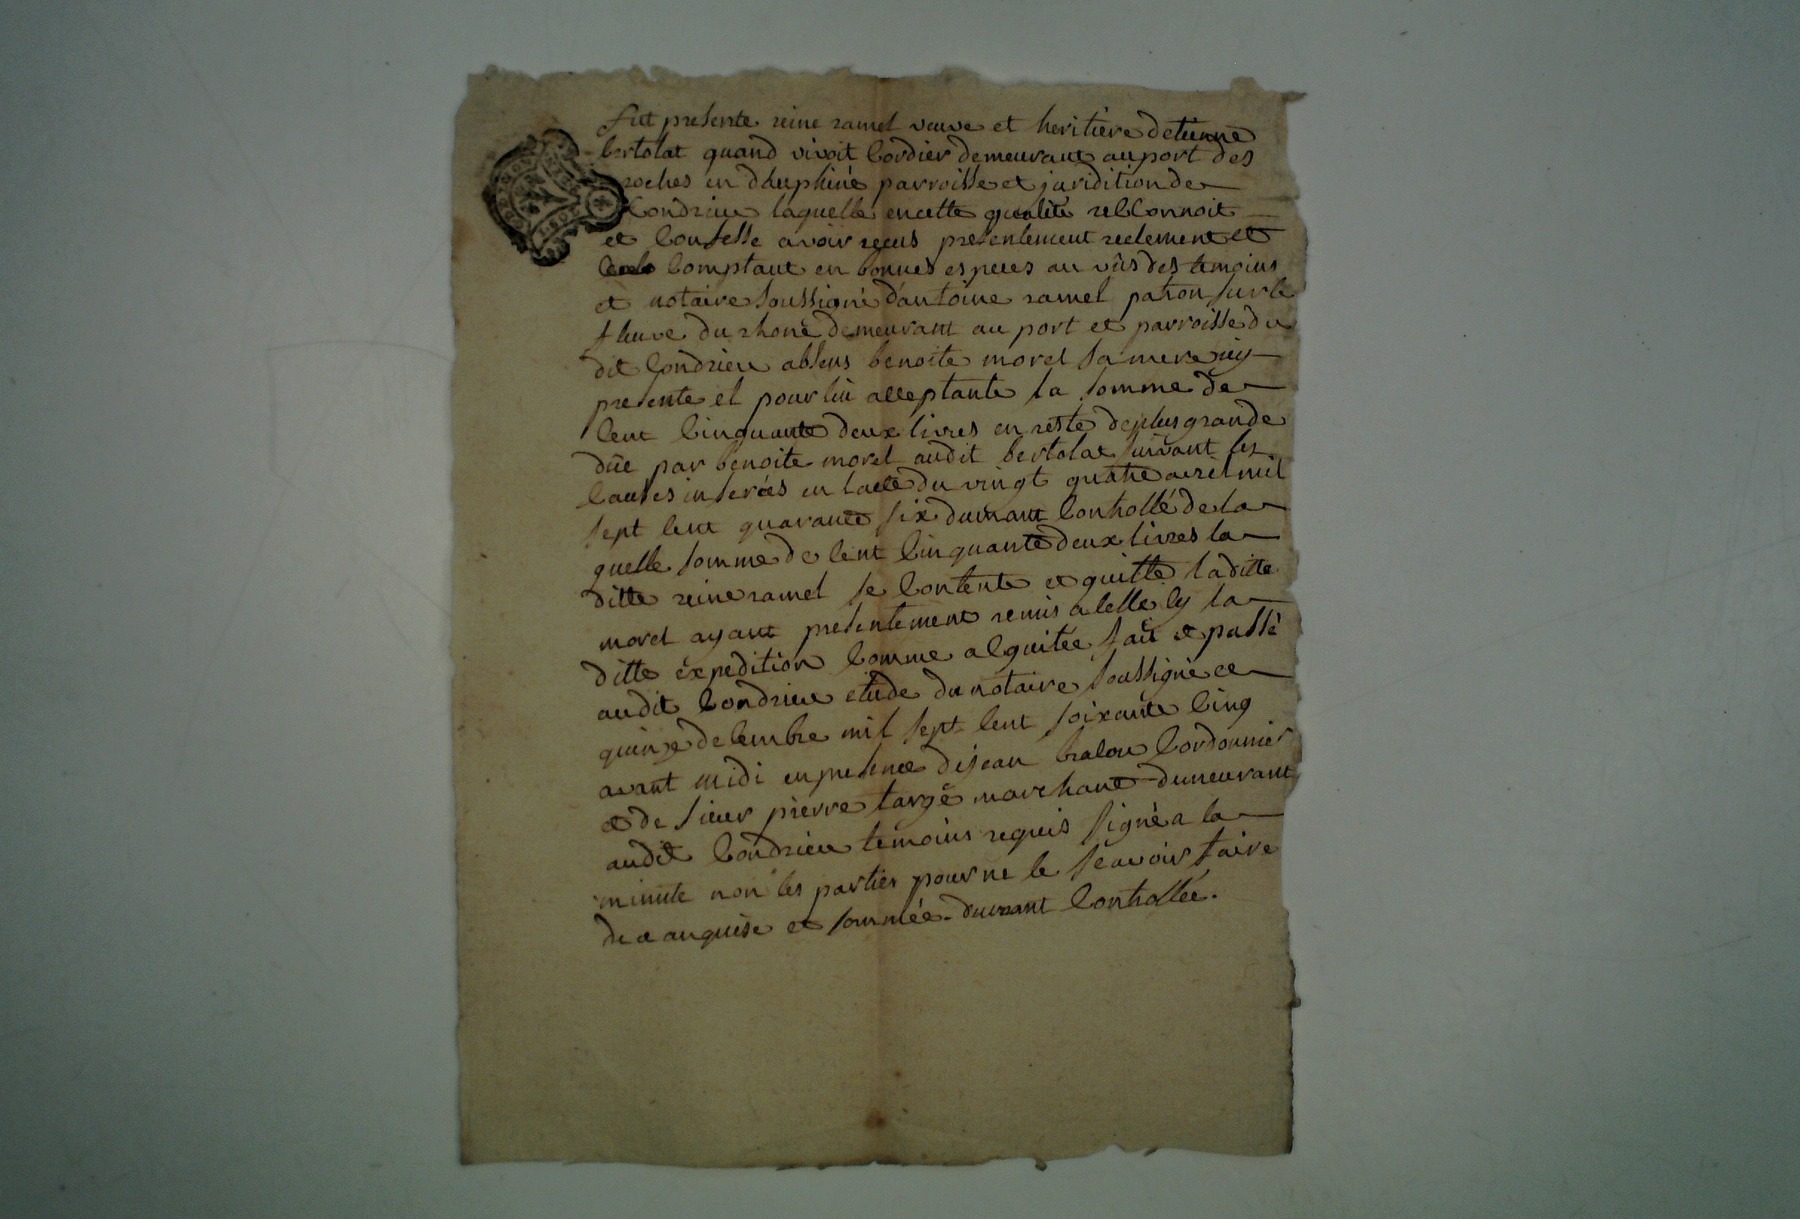 fut presente reine ramel veuve et heritière detienne
bertolat quand vivoit cordier demeurant au port des
roches en dauphiné parroisse et juridition de
condrieu laquelle en cette qualité reconnoit
et confesse avoir reçus presentement reelement et
comptant en bonnes especes au vûs des temoins
et notaire soussigné d'antoine ramel patron sur le
fleuve du rhone demeurant au port et parroisse du
dit condrieu absens benoite morel sa mere icy
presente et pour lui acceptante la somme de
cent cinquante deux livres en reste de plus grande
dûe par benoite morel audit bertolat suivant les
causes inserées en lacte du vingt quatre avril mil
sept cent quarante six duement controllé de la
quelle somme de cent cinquante deux livres la
ditte reine ramel se contente et quitte laditte
morel ayant presentement remis a celle cy la
ditte éxpedition comme acquitée fait et passé
audit condrieu etude du notaire soussigné ce
quinze decembre mil sept cent soixante cinq
avant midi en presence de jean cordonnier
et de sieur pierre fargé marchant demeurant
audit condrieu temoins requis signé a la
minute non les parties pour ne le scavoir faire
de ce enquise et sommée duement controllée.